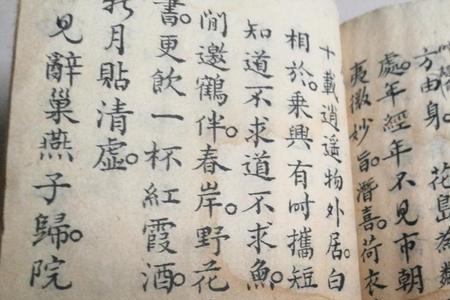 方由身。花島為
處。年經年不見市朝
夷徼妙旨。潛喜荷衣
十載逍遥物外居。白
相於。乘興有时攜短
知道不求道不求魚。
閒邊鶴伴春岸。野花
書。更飲一杯紅霞酒。
新月貼清虛。
見辭巢燕子歸。院